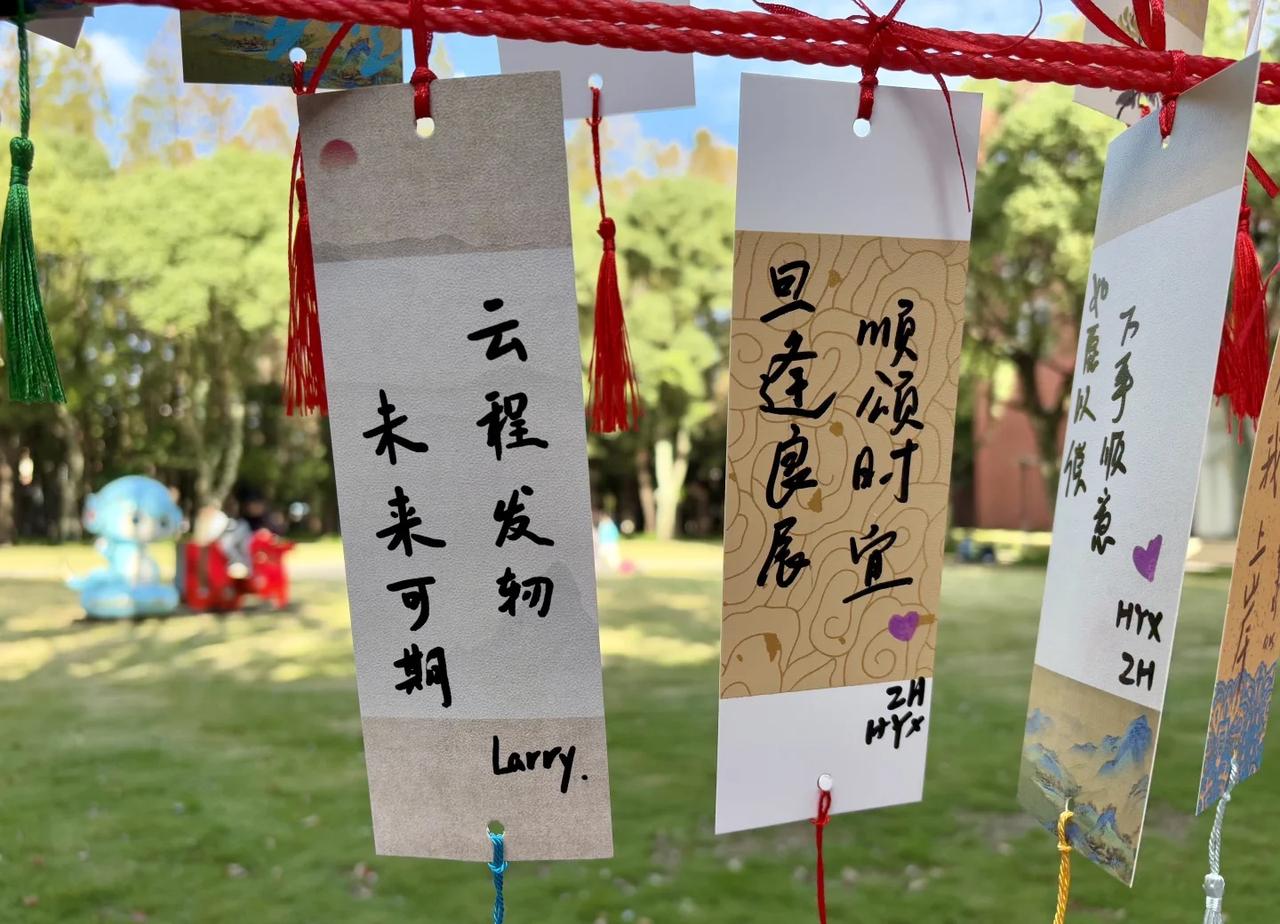 云程发轫
未来可期
Larry.
顺颂时宜
旦逢良辰
ZH
HYX
万事顺意
如愿以偿
HYX
ZH
上岸